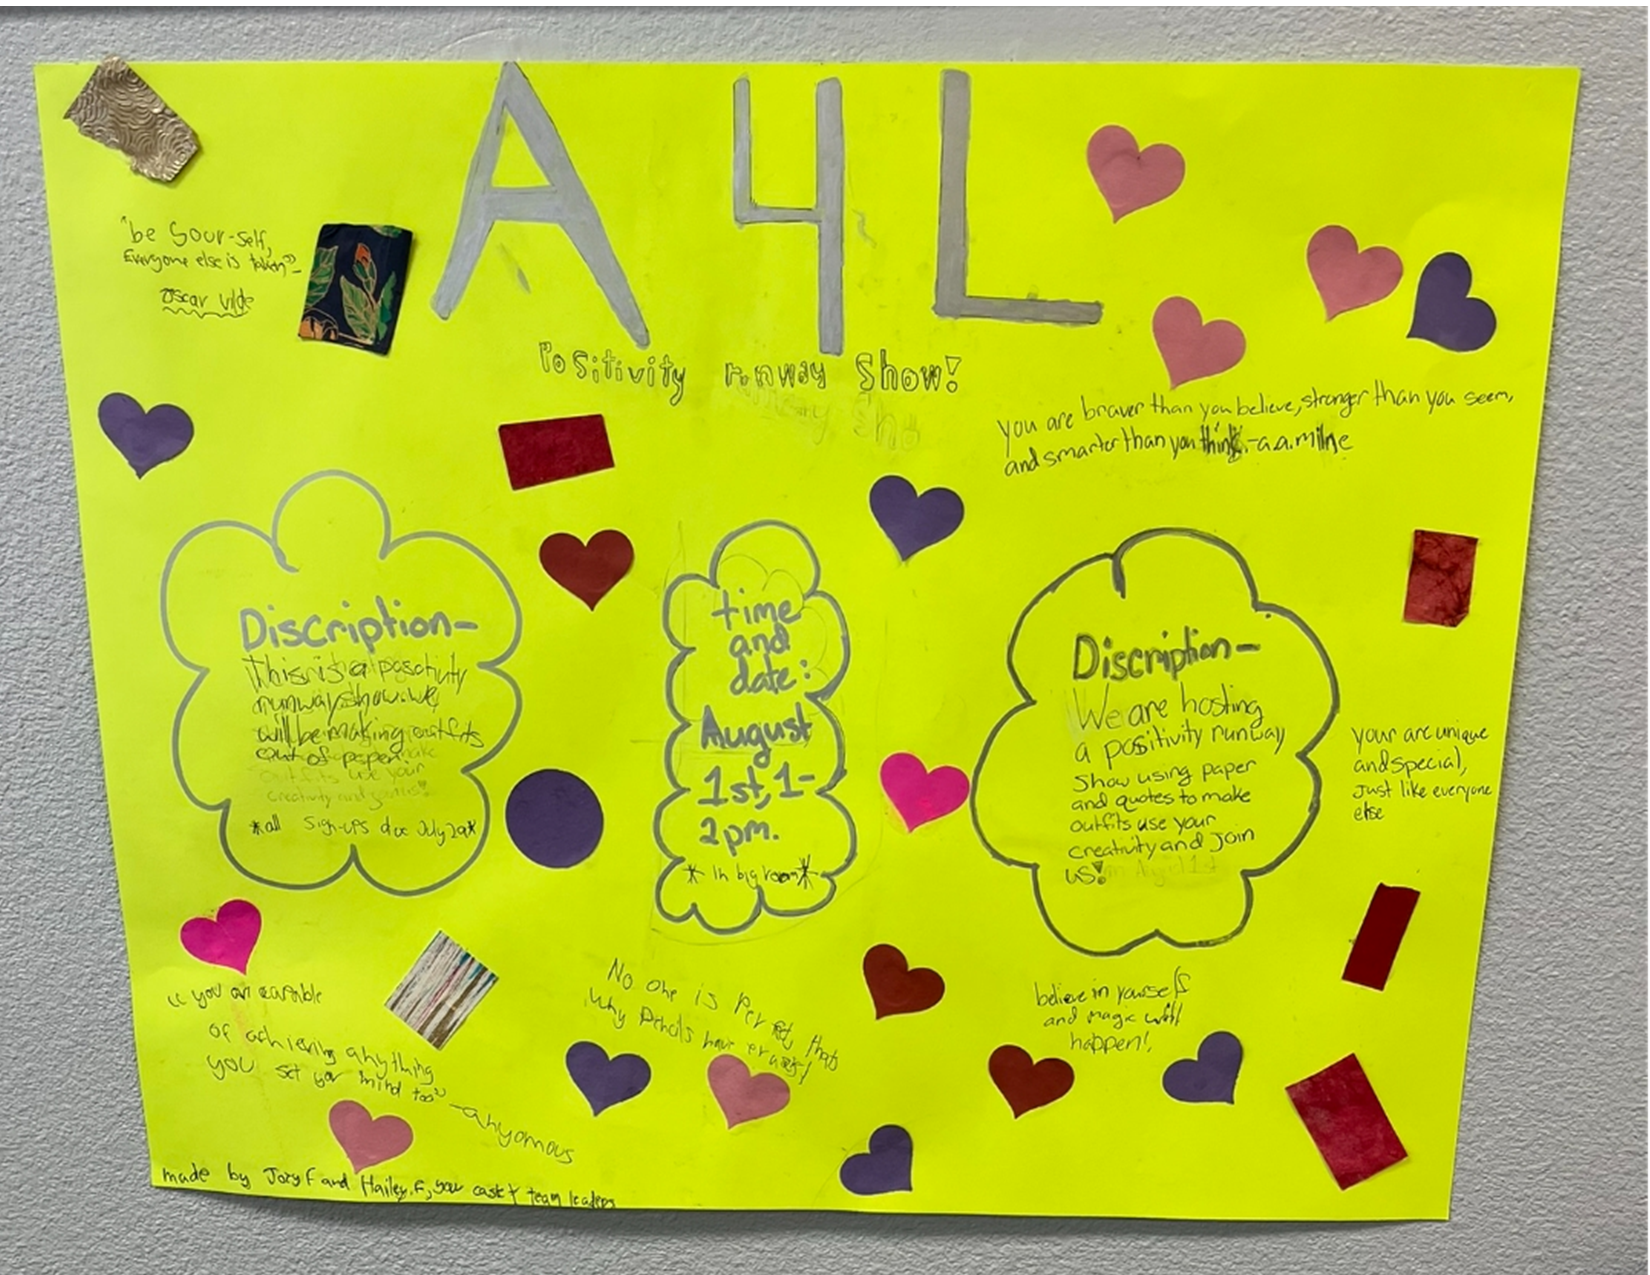 A 4 L
Positivity runway Show!
"be your-self,
Everyone else is taken"-
Oscar wilde
you are braver than you believe, stronger than you seem,
and smarter than you think.-a.a.milne
Discription-
This is a posactivity
runway show. we
will be making outfits
out of paper.
outfits use your
creativity and
*all Sign-ups due July 29*
time
and
date:
August
1st, 1-
2pm.
* In big room*
Discription-
We are hosting
a positivity runway
Show using paper
and quotes to make
outfits use your
creativity and join
us!
your are unique
and special,
Just like everyone
else
"you are capable
of achieving anything
you set your mind too"
-anyomous
No one is perfect, thats
why pencils have erasers!
believe in yourself
and magic will
happen!
made by Joey F and Hailey.F, your team leaders